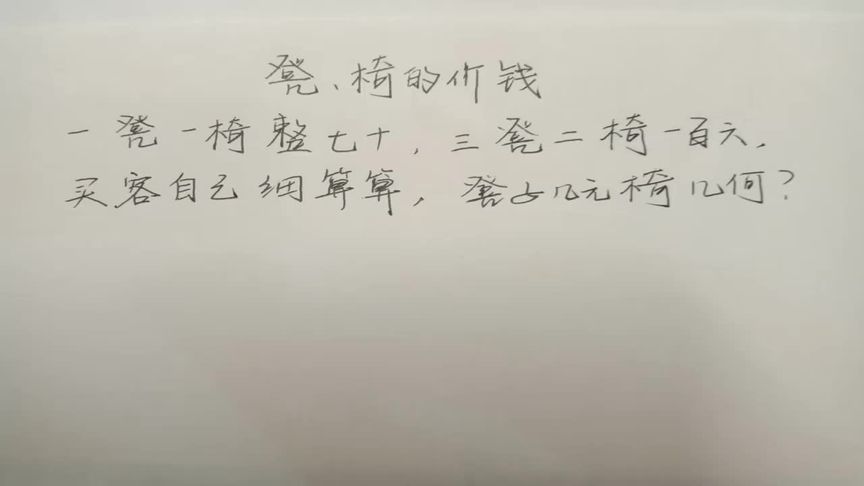 凳、椅的价钱
一凳一椅整七十，三凳二椅一百六，
买客自己细算算，凳占几元椅几何？